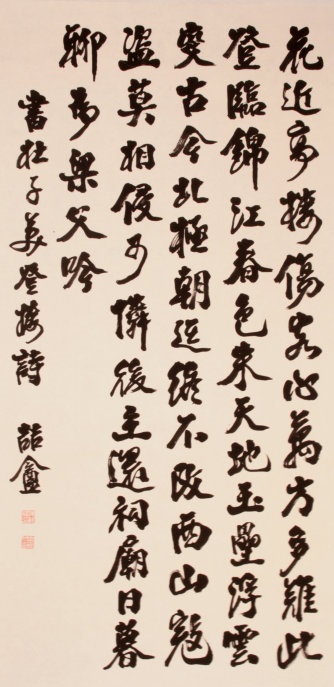 花近高樓傷客心萬方多難此
登臨錦江春色來天地玉壘浮雲
變古今北極朝廷終不改西山寇
盜莫相侵可憐後主還祠廟日暮
聊為梁父吟
書杜子美登樓詩 盦